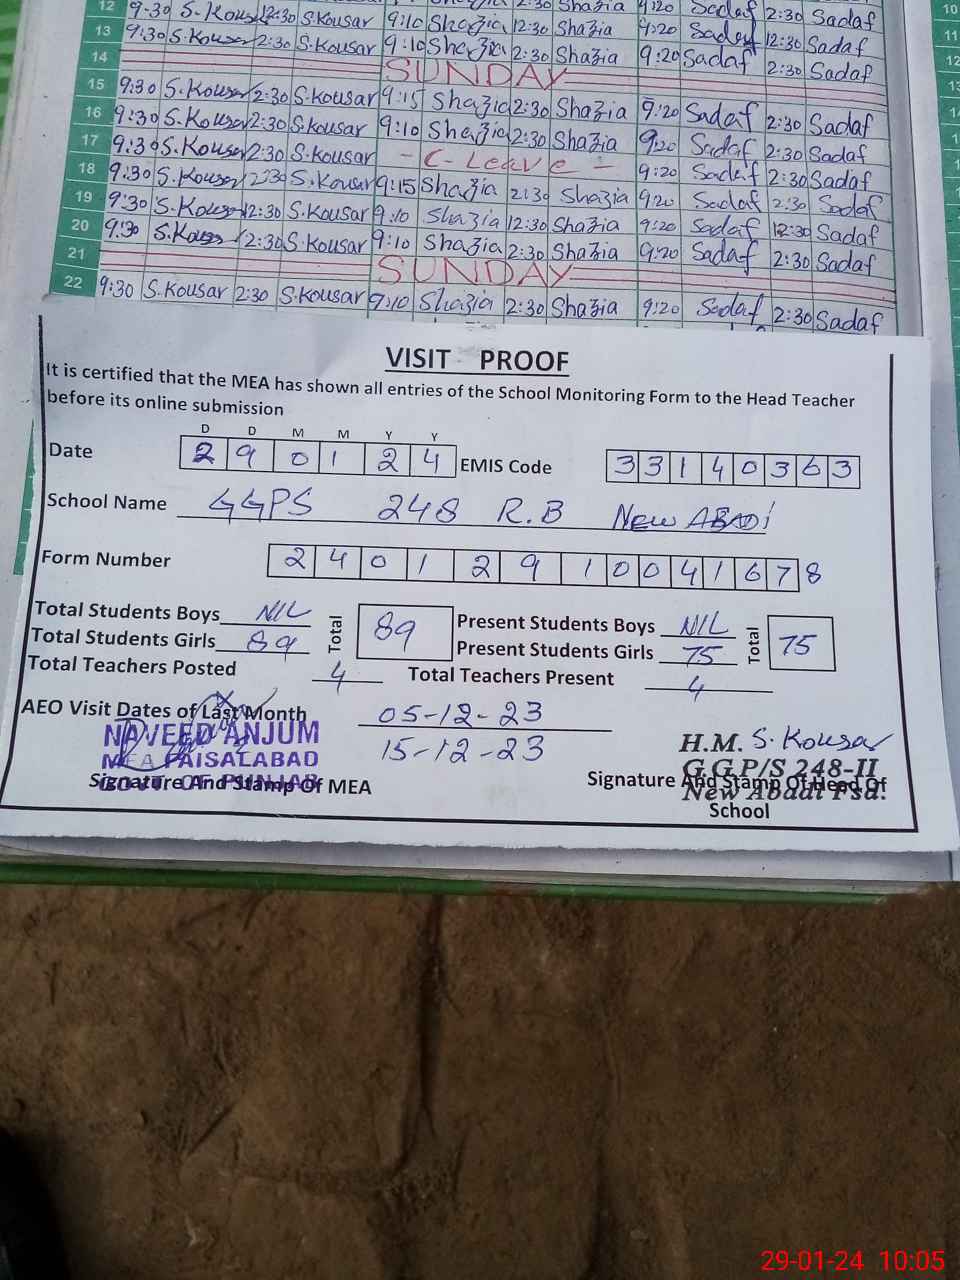 12 9:30 S. Kousar 12:30 S.Kousar 9:10 Shazia 12:30 Shazia 9:20 Sadaf 2:30 Sadaf
13 9:30 S.Kousar 2:30 S.Kousar 9:10 Shazia 2:30 Shazia 9:20 Sadaf 12:30 Sadaf
14 SUNDAY 2:30 Sadaf
15 9:30 S.Kousar 2:30 S.Kousar 9:15 Shazia 2:30 Shazia 9:20 Sadaf 2:30 Sadaf
16 9:30 S.Kousar 2:30 S.Kousar 9:10 Shazia 2:30 Shazia 9:20 Sadaf 2:30 Sadaf
17 9:30 S.Kousar 2:30 S.Kousar - C-Leave - 9:20 Sadaf 2:30 Sadaf
18 9:30 S.Kousar 2:30 S.Kousar 9:15 Shazia 2:30 Shazia 9:20 Sadaf 2:30 Sadaf
19 9:30 S.Kousar 2:30 S.Kousar 9:10 Shazia 12:30 Shazia 9:20 Sadaf 12:30 Sadaf
20 9:30 S.Kousar 2:30 S.Kousar 9:10 Shazia 2:30 Shazia 9:20 Sadaf 2:30 Sadaf
21 SUNDAY
22 9:30 S.Kousar 2:30 S.Kousar 9:10 Shazia 2:30 Shazia 9:20 Sadaf 2:30 Sadaf
10
11
12
VISIT PROOF
It is certified that the MEA has shown all entries of the School Monitoring Form to the Head Teacher
before its online submission
D D M M Y Y
Date 2 9 0 1 2 4 EMIS Code 3 3 1 4 0 3 6 3
School Name GGPS 248 R.B New ABADi
Form Number 2 4 0 1 2 9 1 0 0 4 1 6 7 8
Total Students Boys NIL Total 89 Present Students Boys NIL Total 75
Total Students Girls 89 Present Students Girls 75
Total Teachers Posted 4 Total Teachers Present 4
AEO Visit Dates of Last Month 05-12-23
15-12-23
NAVEED ANJUM
MEA FAISALABAD
GOVT OF PUNJAB
Signature And Stamp Of MEA
H.M. S. Kousar
G.G.P/S 248-II
New Abadi Fsd.
Signature And Stamp Of Head Of
School
29-01-24 10:05